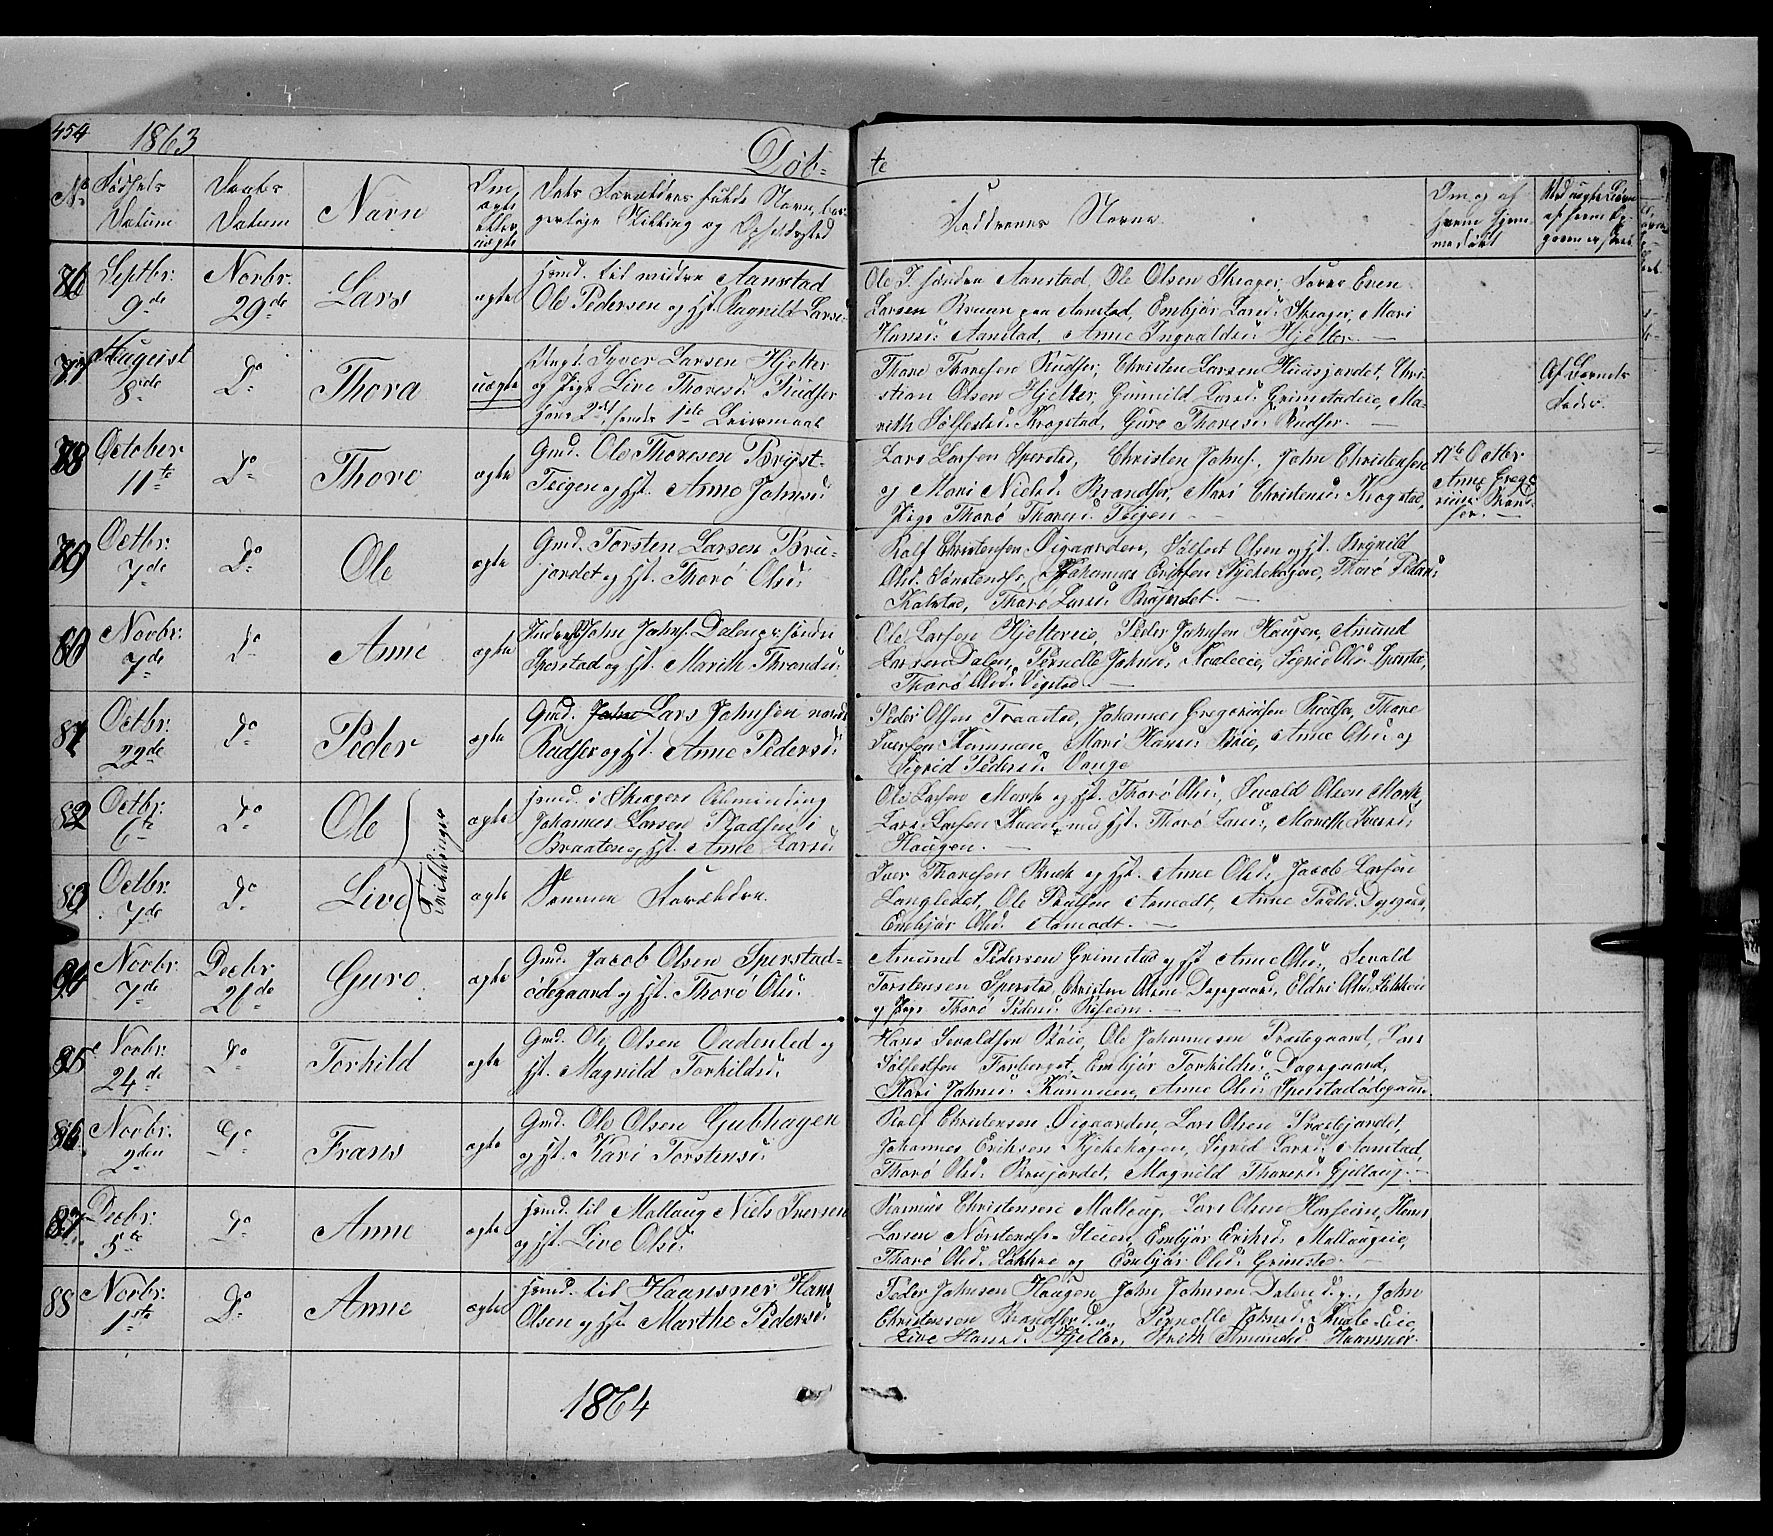 454 1863 Døb- te
No Fødsels Datum
Daabs Datum
Navn
Om ægte eller uægte
Dets Forældres fulde Navn, bor-
gerlige Stilling og Opholdssted
Faddrenes Navne
Om og af hvem hjemmedøbt
Ved uægte Børn af hvem Opgivven er skeet
76 Septbr: 9de Novbr: 29de Lars ægte
til midtre Aanstad
Ole Pedersen og Hst. Ragnild Larsd:
Ole P. søndre Aanstad, Ole Olsen Skeager, Even
Larsen Bruun paa Aanstad, Embjør Larsd: Skeager, Mari
Hansd: Aanstad, Anne Ingvaldsd: Hjelter.
77 August 8de Do Thora uægte
Ungk. Syver Larsen Hjelter
og Pige Live Thoresd: Rudser
hans 2det, hendes 1ste Leiermaal
Thore Thoresen Rudser, Christen Larsen Huusjordet, Chri-
stian Olsen Hjelter, Gunnild Larsd: Grimstadeie, Ma-
rith Sølfestsd: Krogstad, Guro Thoresd: Rudser.
Af Barnets
Fader.
78 October 11te Do Thore ægte
Gmd. Ole Thoresen Bryst-
Teigen og Hst. Anne Johnsd:
Lars Larsen Sperstad, Christen Johns., John Christensen
og Mari Nielsd: Brandser, Mari Christensd: Krogstad,
Pige Thorø Thoresd: Teigen
17de Octbr:
Anne Grego
riusd: Brand
ser.
79 Octbr: 7de Do Ole ægte
Gmd. Torsten Larsen Bru-
jordet og Hst. Thorø Olsd:
Rolf Christensen Øigaarden, Sølfest Olsen og Hst. Ragnild
Olsd: Johannes Eriksen Kjekehagen, Thorø Pedersd:
Kolstad, Thorø Larsd: Brujordet.
80 Novbr: 7de Do Anne ægte
John Johns. Dalen pr søndre
Sperstad og Hst. Marith Throndsd:
Ole Larsen Hjeltereie, Peder Johnsen Haugen, Amund
Larsen Dalen, Pernelle Johnsd: Sigrid Olsd: Sperstad,
Thorø Olsd: Vigstad.
81 Octbr: 22de Do Peder ægte
Gmd. Lars Johnsen nordre
Rudser og Hst. Anne Pedersd:
Peder Olsen Traastad, Johannes Gregoriusen Rudser, Thore
Iversen Kummen, Mari Hansd: Bøie, Anne Olsd: og
Sigrid Pedersd: Vange
82 Octbr: 6te Do Ole Tvillinger ægte
i Skeagers Almending
Johannes Larsen Rudsen i
Braaten og Hst. Anne Larsd:
Ole Larsen Mork og Hst. Thorø Olsd:, Sevald Olsen Mork,
Lars Larsen Hauen med Hst. Thorø Larsd:, Marith Iversd:
Haugen.
83 Octbr: 7de Do Live ægte
Samme Forældre.
Iver Thoresen Bruk og Hst. Anne Olsd:, Jacob Larsen
Langledet, Ole Paulsen Aamodt, Anne Dagsgaard,
Embjør Olsd: Aamodt.
84 Novbr: 7de Decbr: 26de Guro ægte
Gmd. Jacob Olsen Sperstad-
ødegaard og Hst. Thorø Olsd:
Amund Pedersen Grimstad og Hst Anne Olsd:, Sevald
Torstensen Sperstad, Christen Olsen Dagsgaard, Eldri Olsd:
og Pige Thorø Pedersd: Røseem.
85 Novbr: 24de Do Torhild ægte
Gmd. Ole Olsen Aadenled og
Hst. Magnild Torkildsd:
Hans Sevaldsen Bøie, Ole Johannesen Prestegaard, Lars
Sølfestsen Forberget, Embjør Torkildsd: Dagsgaard,
Kari Johnsd: Kummen, Anne Olsd: Sperstadødegaard.
86 Novbr: 2den Do Frans ægte
Gmd. Ole Olsen Gubhagen
og Hst. Kari Torstensd:
Rolf Christensen Øigaarden, Lars Olsen
Johannes Eriksen Kjekehagen, Sigrid Larsd: Aanstad,
Thorø Olsd: Brujordet, Magnild Thoresd: Gjeltaug.
87 Decbr: 5te Do Anne ægte
til Mallaug Niels Iversen
og Hst. Live Olsd:
Rasmus Christensen Mallaug, Lars Olsen Horseim, Hans
Larsen Embjør Eriksd: Mallaugeie,
Thorø Olsd: Løkkre og Embjør Olsd: Grimstad.
88 Novbr: 1ste Do Anne ægte
til Haansnar Hans
Olsen og Hst. Marthe Pedersd:
Peder Johnsen Haugen, John Johnsen Dalen, John
Christensen Brandser, Pernelle Johnsd:
Live Hansd: Hjelter, Amundsd: Haansnar.
1864